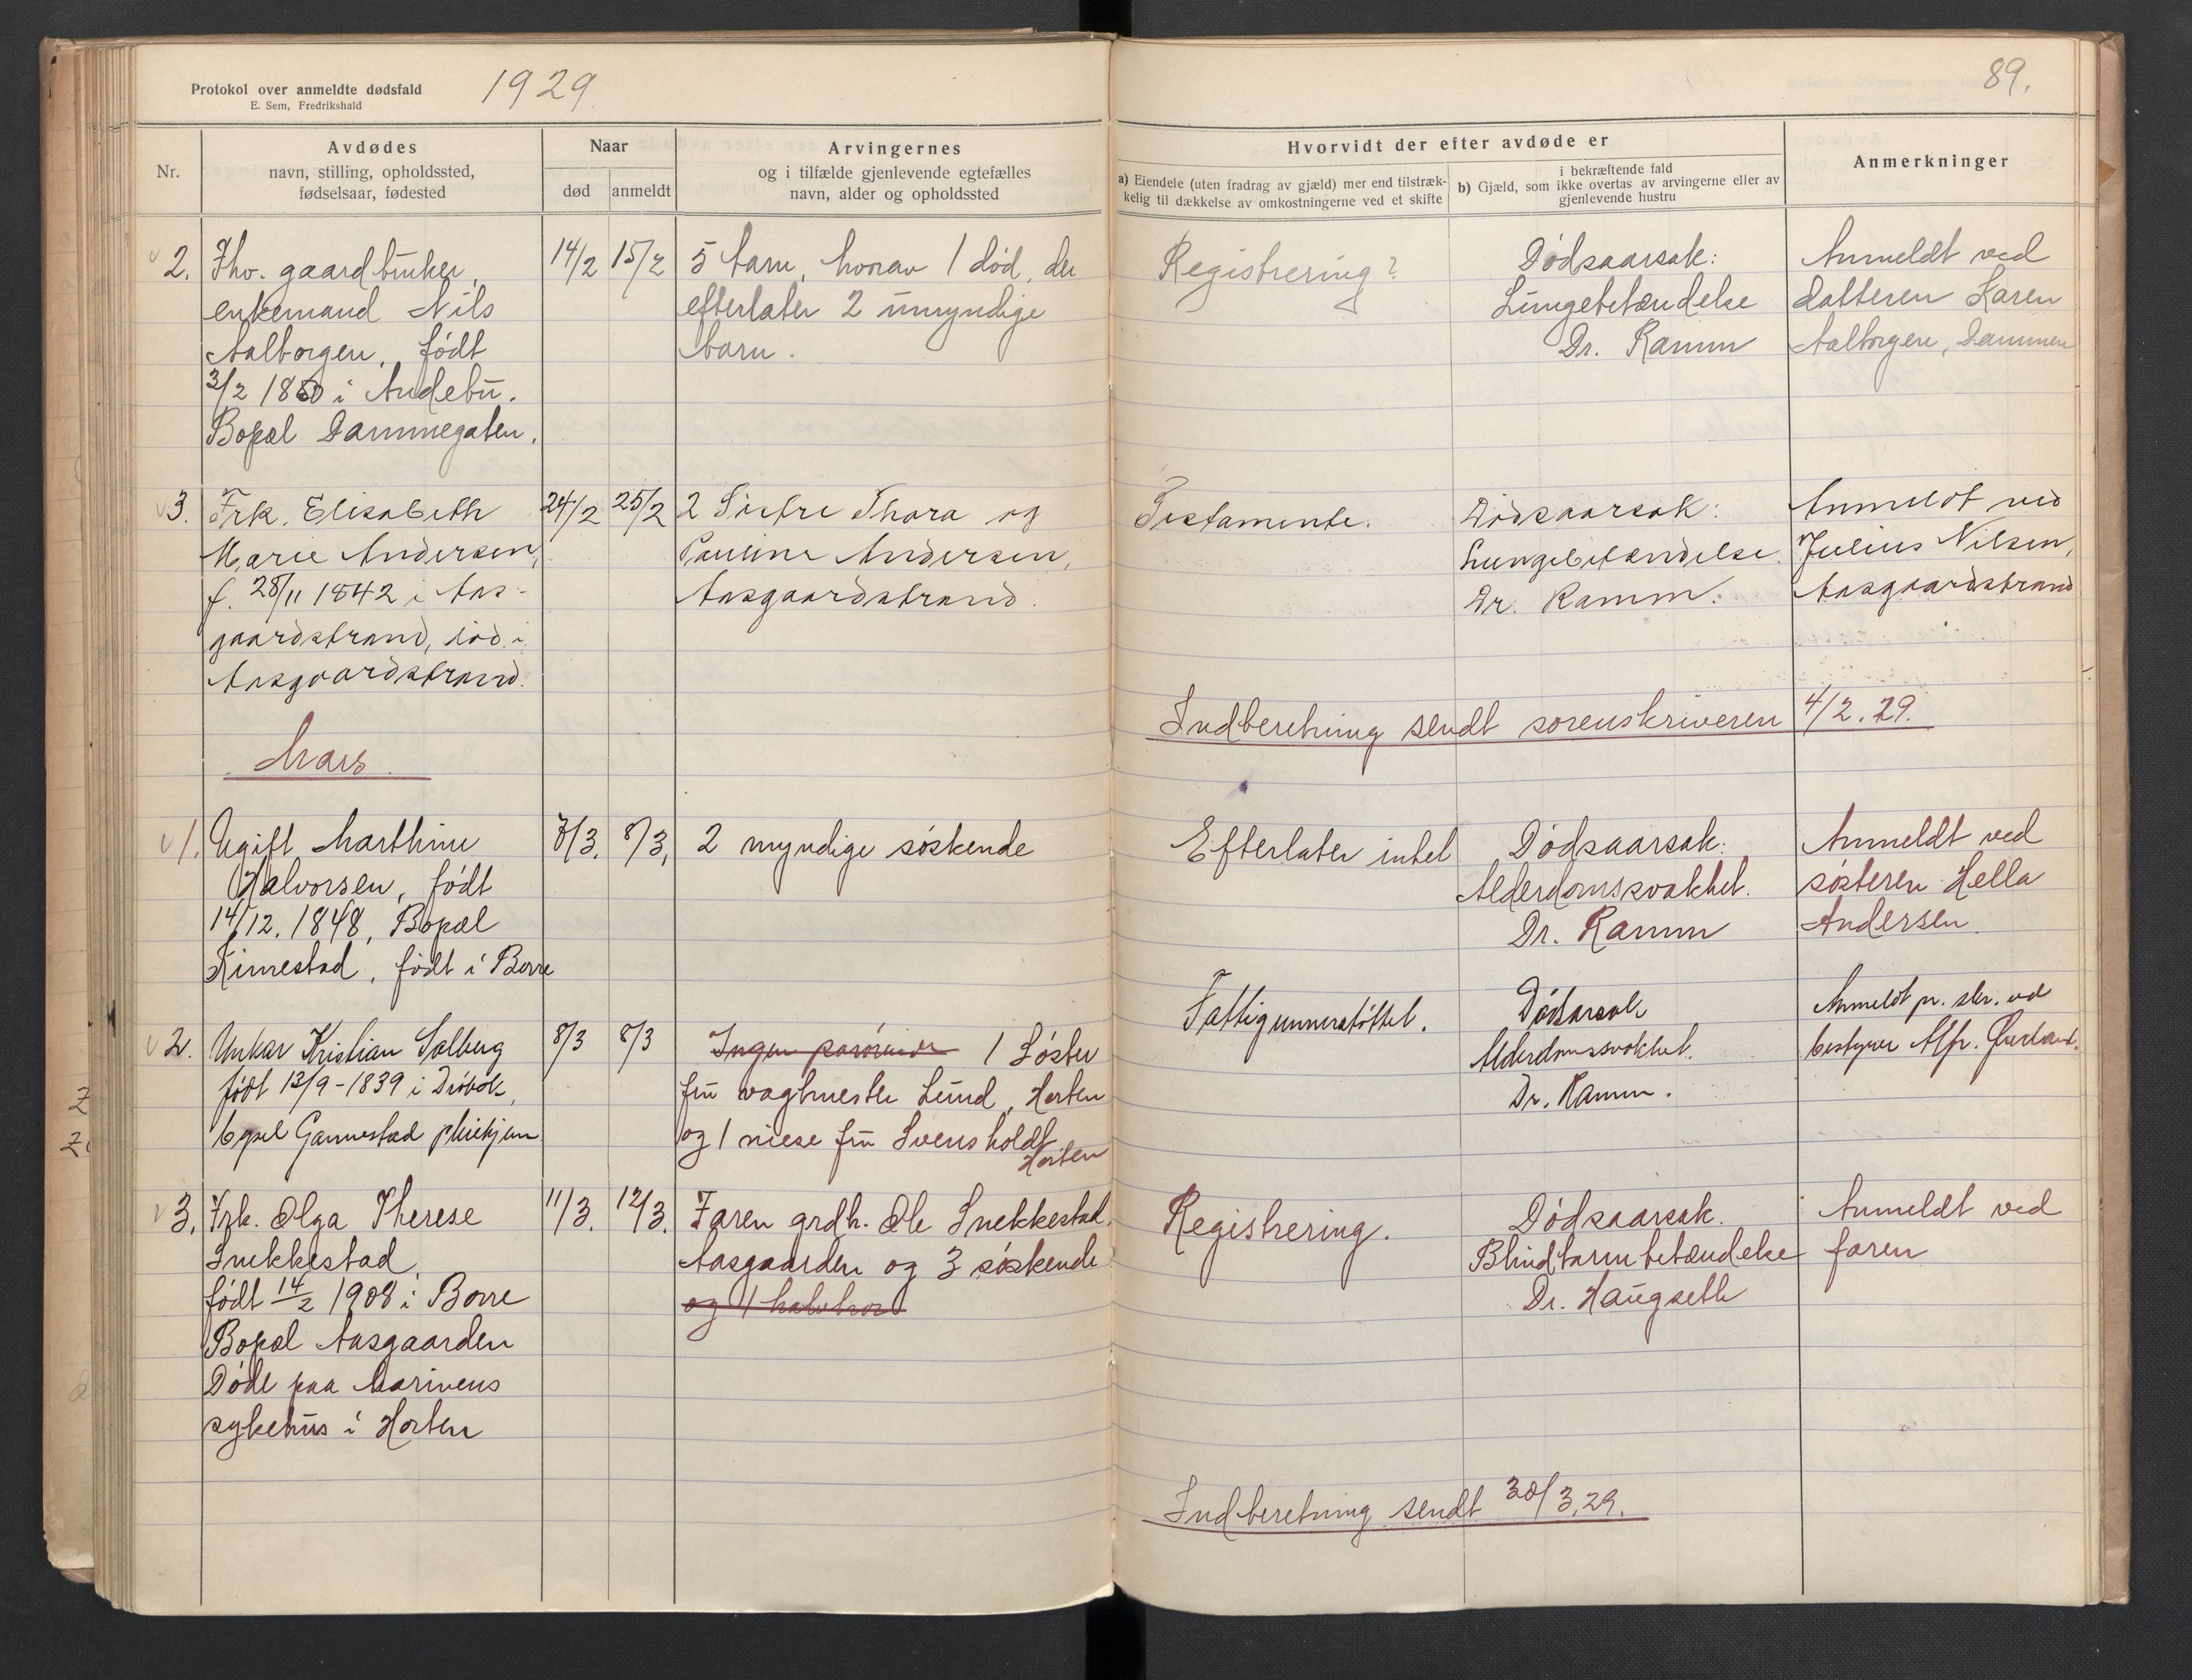 Protokol over anmeldte dødsfald
E. Sem, Fredrikshald
1929
89.
Nr.
Avdødes
navn, stilling, opholdssted,
fødselsaar, fødested
Naar
død
anmeldt
Arvingernes
og i tilfælde gjenlevende egtefælles
navn, alder og opholdssted
Hvorvidt der efter avdøde er
a) Eiendele (uten fradrag av gjæld) mer end tilstræk-
kelig til dækkelse av omkostningerne ved et skifte
i bekræftende fald
b) Gjæld, som ikke overtas av arvingerne eller av
gjenlevende hustru
Anmerkninger
2.
Fhv. gaardbruker,
enkemand Nils
Aalborgen, født
3/2 1850 i Andebu.
Bopæl Dammegaten.
14/2
15/2
5 barn, hvorav 1 død, der
efterlater 2 umyndige
barn.
Registrering?
Dødsaarsak:
Lungebetændelse
Dr. Ramm
Anmeldt ved
datteren Karen
Aalborgen, Dammen
3.
Frk. Elisabeth
Marie Andersen,
f. 28/11 1842 i Aas-
gaardstrand, død i
Aasgaardstrand.
24/2
25/2
2 Søstre Thora og
Pauline Andersen,
Aasgaardstrand.
Testamente.
Dødsaarsak:
Lungebetændelse.
Dr. Ramm.
Anmeldt ved
Julius Nilsen,
Aasgaardstrand
Indberetning sendt sorenskriveren 4/2.29.
Mars.
1.
Ugift Marthine
Halvorsen, født
14/12. 1848, Bopæl
Kirrestad, født i Borre
7/3.
8/3,
2 myndige søskende
Efterlater intet
Dødsaarsak:
Alderdomssvakhet.
Dr. Ramm
Anmeldt ved
søsteren Hella
Andersen.
2.
Unkar Kristian Solberg
født 13/9-1839 i Drøbak,
bopæl Gannestad pleiehjem
8/3
8/3
Ingen paarørende 1 Søster
fru vagtmester Lund, Horten
og 1 niese fru Svensholdt
Horten
Fattigunnerstøttet.
Dødsarsak
Alderdomssvakhet.
Dr. Ramm.
Anmeldt pr. skr. ved
bestyrer Alfr.
3.
Frk. Olga Therese
Snekkestad
født 14/2 1908 i Borre
Bopæl Aasgaarden
Døde paa Marinens
sykehus i Horten
11/3.
12/3.
Faren grdb. Ole Snekkestad,
Aasgaarden og 3 søskende
og 1 halvbror
Registrering.
Dødsaarsak.
Blindtarmbetændelse
Dr. Haugseth
Anmeldt ved
faren
Indberetning sendt 30/3.29.